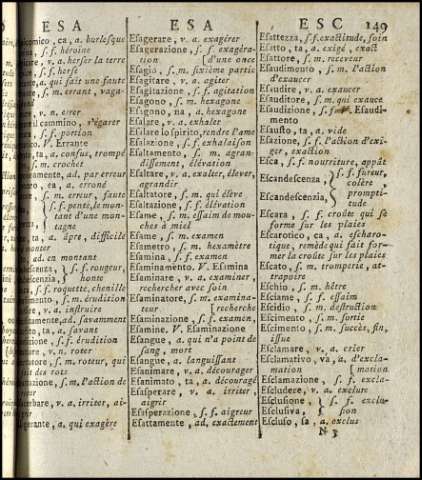 ESA
ESA
ESC 149
comico, ca, a. burlesque
s. f. héroine
picare, v. a. herser la terre
s. f. herse
a. qui fait une faute
s. m. errant, vaga-
v. n. errer
il cammino, s'égarer
s. f. portion
V. Errante
ta, a. confus, trompé
s. m. crochet
amente, ad. par erreur
eo, ea, a. erroné
s. m. erreur, faute
s. f. pente, le mon-
tant d'une mon-
tagne
ta, a. âpre, difficile
monter
ad. en montant
s. f. rougeur,
honte
s. f. roquette, chenille
s. m. érudition
v. a. instruire
ad. savamment
ta, a. savant
s. f. érudition
v. n. roter
s. m. roteur, qui
fait des rots
s. m. l'action de
v. a. irriter, ai-
a. qui exagère
Esagerare, v. a. exagérer
Esagerazione, s. f. exagéra-
tion [d'une once
Esagio, s. m. sixième partie
Esagitare, v. a. agiter
Esagitazione, s. f. agitation
Esagono, s. m. hexagone
Esagono, na, a. hexagone
Esalare, v. a. exhaler
Esalare lo spirito, rendre l'ame
Esalazione, s. f. exhalaison
Esaltamento, s. m. agran-
dissement, élévation
Esaltare, v. a. exalter, élever,
agrandir
Esaltatore, s. m. qui élève
Esaltazione, s. f. élévation
Esame, s. m. essaim de mou-
ches à miel
Esame, s. m. examen
Esametro, s. m. hexamètre
Esamina, s. f. examen
Esaminamento. V. Esamina
Esaminare, v. a. examiner,
rechercher avec soin
Esaminatore, s. m. examina-
teur [recherche
Esaminazione, s. f. examen,
Esamine. V. Esaminazione
Esangue, a. qui n'a point de
sang, mort
Esangue, a. languissant
Esanimare, v. a. décourager
Esanimato, ta, a. découragé
Esasperare, v. a. irriter,
aigrir
Esasperazione, s. f. aigreur
Esattamente, ad. exactement
Esattezza, s. f. exactitude, soin
Esatto, ta, a. exigé, exact
Esattore, s. m. receveur
Esaudimento, s. m. l'action
d'exaucer
Esaudire, v. a. exaucer
Esauditore, s. m. qui exauce
Esaudizione, s. f. V. Esaudi-
mento
Esausto, ta, a. vide
Esazione, s. f. l'action d'exi-
ger, exaction
Esca, s. f. nourriture, appât
Escandescenza, } s. f. fureur,
colère,
Escandescenzia, } prompti-
tude
Escara, s. f. croûte qui se
forme sur les plaies
Escarotico, ca, a. escharo-
tique, remède qui fait for-
mer la croûte sur les plaies
Escato, s. m. tromperie, at-
trapoire
Eschio, s. m. hêtre
Esciame, s. f. essaim
Escidio, s. m. destruction
Escimento, s. m. sortie
Escimento, s. m. succès, fin,
issue
Esclamare, v. a. crier
Esclamativo, va, a. d'excla-
mation [mation
Esclamazione, s. f. excla-
Escludere, v. a. exclure
Esclusione, } s. f. exclu-
Esclusiva, } sion
Escluso, sa, a. exclus
N 3